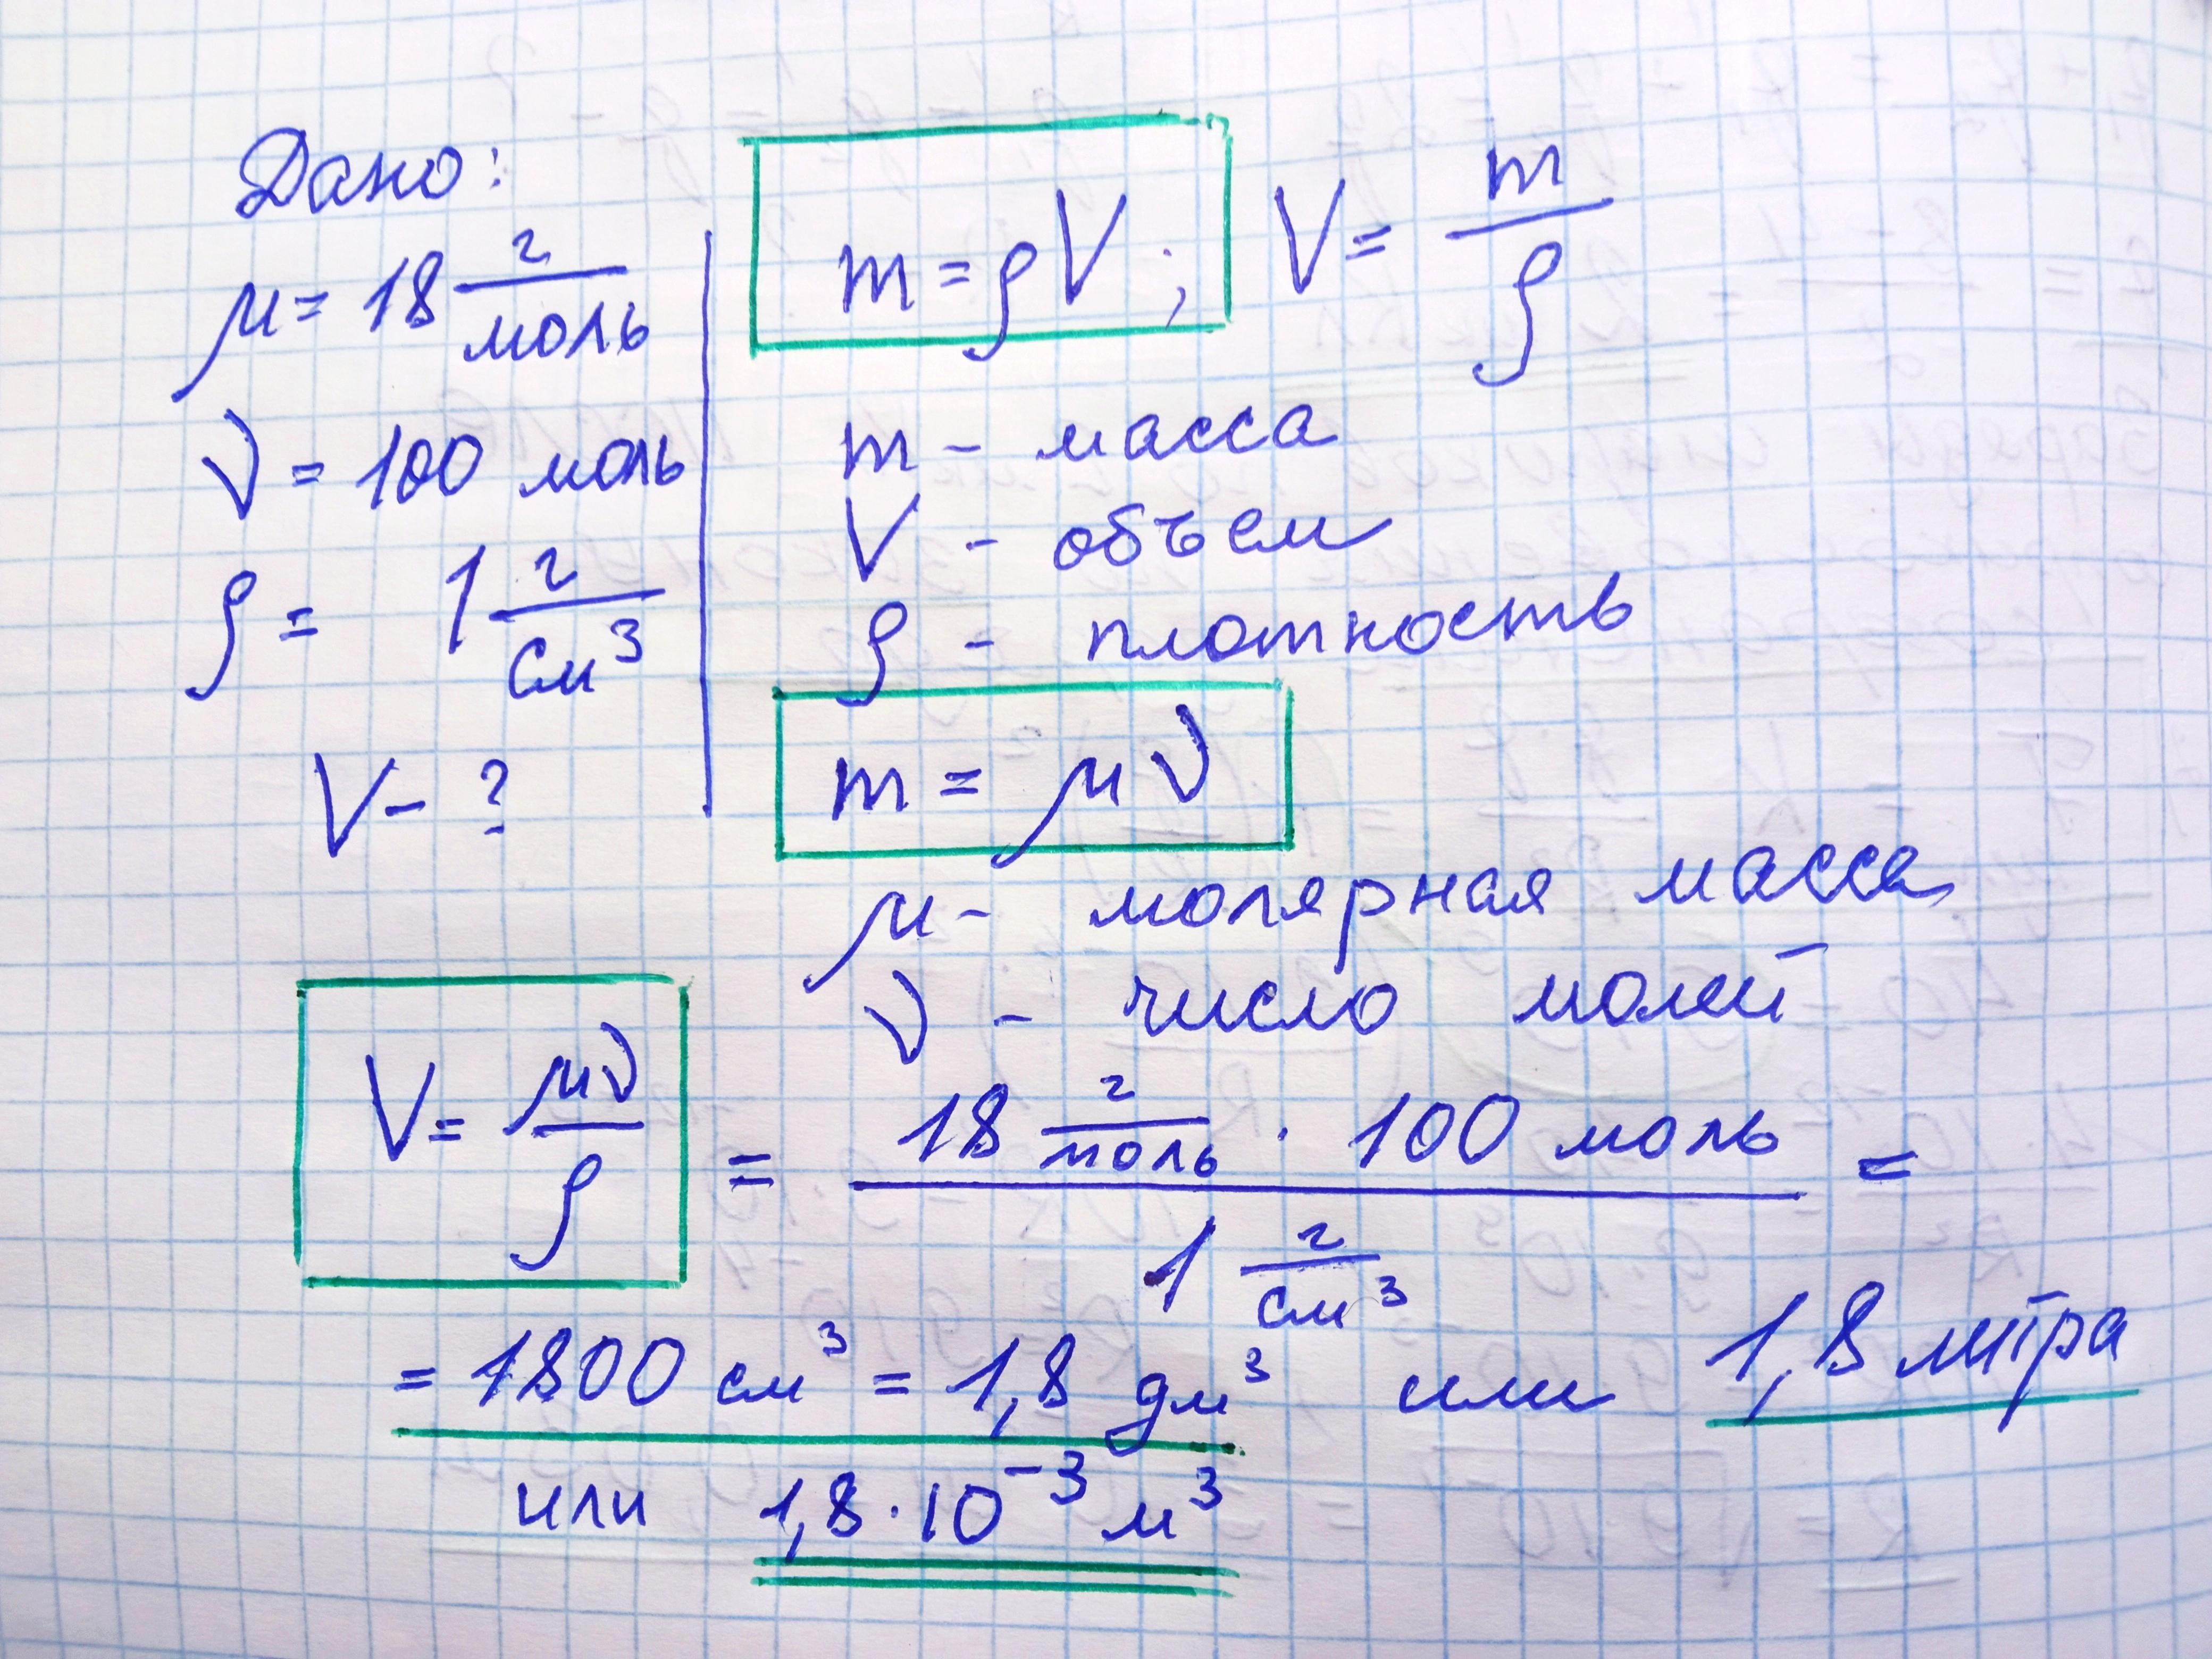 Дано:
μ = 18 г/моль
ν = 100 моль
ρ = 1 г/см³
V - ?
m = ρV; V = m/ρ
m - масса
V - объем
ρ - плотность
m = μν
μ - молярная масса
ν - число молей
V = μν/ρ = 18 г/моль · 100 моль / 1 г/см³ =
= 1800 см³ = 1,8 дм³ или 1,8 литра
или 1,8 · 10⁻³ м³